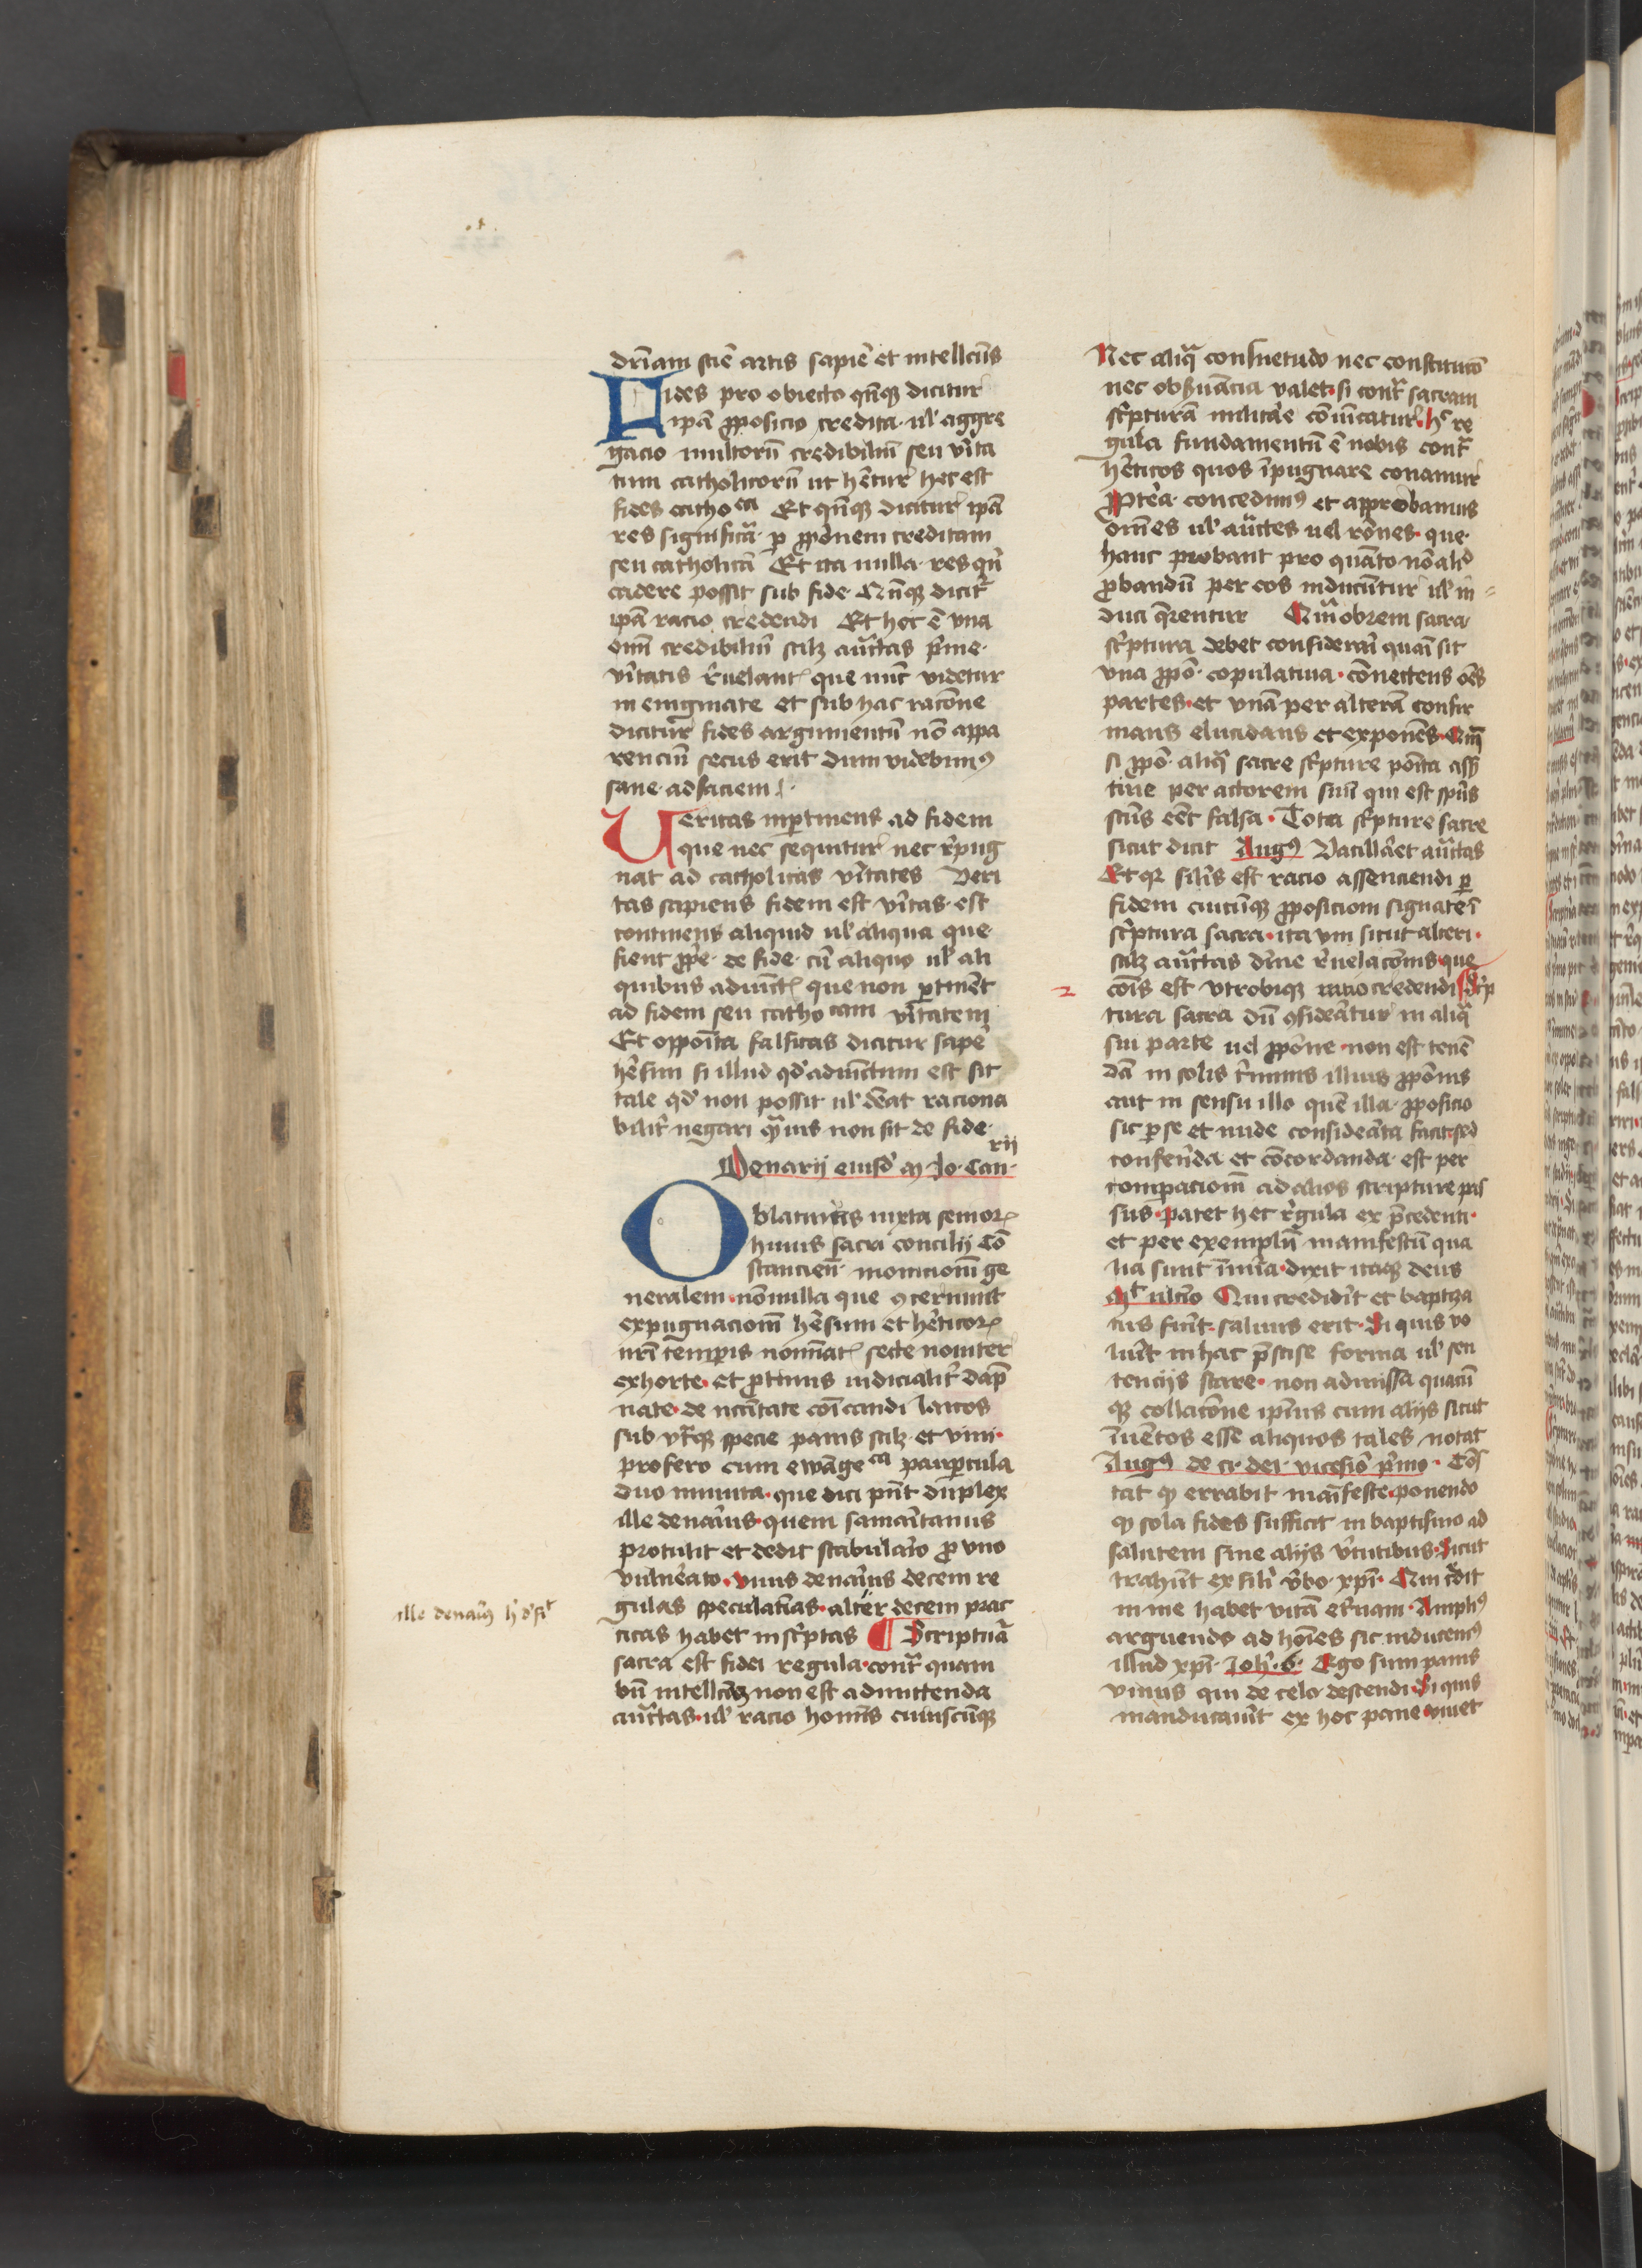 driam scie artis sapie et intellcus
Fides pro obiecto qnqz dicitur
ipa pposicio credita ul' aggre
gacio multoru credibiliu seu vita
tum catholicoru ut hetur hec est
fides catho ca Et qnqz dicitur ipa
res significa p pponem creditam
seu catholica Et ita nulla res qn
cadere possit sub fide Qnqz dicit
ipa racio credendi Et hec e vna
oim credibiliu scilz auctas pme
vitatis reuelant que nuc videtur
in enigmate et sub hac racone
dicitur fides argumentu no appa
renciu secus erit dum videbim9
sane ad faciem
Veritas inptinens ad fidem
que nec sequitur nec repug
nat ad catholicas vitates Veri
tas sapiens fidem est vitas est
continens aliquid ul' aliqua que
sient ppe de fide cu aliquo ul' ali
quibus adiuct que non ptinet
ad fidem seu catho cam vitatem
Et oppoita falsitas dicitur sape
hesim si illud qd' adiuctum est sit
tale qd' non possit ul' deat raciona
bilit negari quis non sit de fide
Denarij eiusd' m Io. Can rij
Oblaturus iuxta senior
huius sacri concilij Co
stancien monicionem ge
neralem nonulla que 9cernunt
expugnacionem hesium et heticor
nri temporis nominat secte nouiter
exhorte et ptinus iudicialit dap
nate de ncitate coicandi laicos
sub vtqz specie panis scilz et vini
profero cum ewange ca paupcula
duo minuta que dici pnt duplex
ille denarius quem samaritanus
protulit et dedit stabulario p vno
vulnerato vnus denarius decem re
gulas speculatiuas alter decem prac
ticas habet inscriptas ¶ Scriptura
sacra est fidei regula contra quam
bn intellcam non est admittenda
auctas ul' racio hominis cuiuscuqz
ille denari9
Nec aliqua consuetudo nec constitucio
nec obseruancia valet si contra sacram
scripturam militare conuincatur hec re
gula fundamentu e nobis contra
heticos quos ipugnare conamur
Pterea concedim9 et approbamus
omes ul' auctes uel rones que
hanc probant pro quanto no aliud
pbandu per eos inducuntur ul' in
duci queruntur Quaobrem sacra
scriptura debet considerari quasi sit
vna ppo copulatiua connectens oes
partes et vna per altera confir
mans elucidans et exponens Quia
si ppo aliqua sacre scripture posita asser
tiue per actorem suu qui est spus
scus eet falsa Tota scripture sacre
sicut dicit Aug9 Vacillaret auctas
Et quia similis est racio assenciendi p
fidem cuicuqz pposicioni signate i
scriptura sacra ita vni sicut alteri
scilz auctas diuine reuelaconis que
2 cois est vtrobiqz racio credendi Scrip
tura sacra du 9sideratur in aliqua
sui parte uel ppone non est tenen
da in solis terminis illius pponis
aut in sensu illo quem illa pposicio
sic p se et nude considerata facit sed
conferenda et concordanda est per
comparacionem ad alios scripture pas
sus patet hec regula ex precedenti
et per exemplum manifestum qua
lia sunt innumera dixit itaqz deus
Mt ultimo Qui crediderit et baptiza
tus fuerit saluus erit Si quis vo
luerit in hac precise forma ul' sen
tencijs stare non admissa quacu
qz collacione ipsius cum alijs sicut
inuentos esse aliquos tales notat
Aug9 de ci dei vicesimo primo Con
stat qz errabit manifeste ponendo
qz sola fides sufficit in baptismo ad
salutem sine alijs virtutibus Sicut
trahunt ex simili verbo xpi Qui credit
in me habet vitam eternam Amplius
arguendo ad homines sic inducentes
illud xpi Ioh 6 Ego sum panis
viuus qui de celo descendi Si quis
manducauerit ex hoc pane viuet